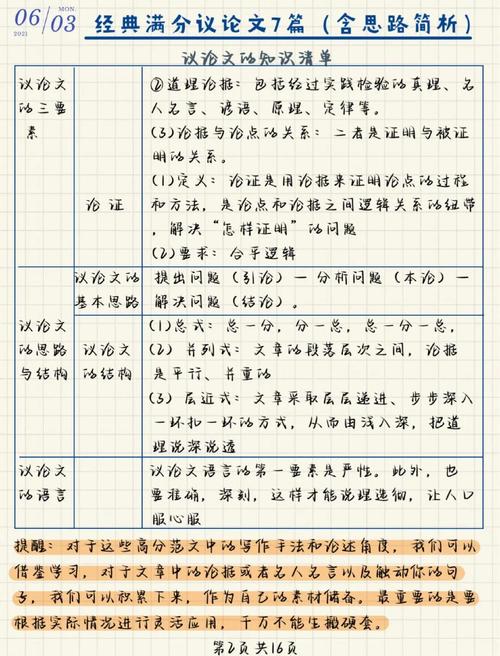 06/03 MON. 2021
经典满分议论文7篇（含思路简析）
议论文的知识清单
议论文的三要素
②道理论据：包括经过实践检验的真理、名
人名言、谚语、原理、定律等。
(3)论据与论点的关系：二者是证明与被证
明的关系。
论证
(1)定义：论证是用论据来证明论点的过程
和方法，是论点和论据之间逻辑关系的纽带
，解决“怎样证明”的问题
(2)要求：合乎逻辑
议论文的思路与结构
议论文的基本思路
提出问题（引论）一分析问题（本论）一
解决问题（结论）。
议论文的结构
(1)总式：总一分，分一总，总一分一总，
(2) 并列式：文章的段落层次之间，论据
是平行、并重的
(3) 层近式：文章采取层层递进、步步深入
一环扣一环的方式，从而由浅入深，把道
理说深说透
议论文的语言
议论文语言的第一要素是严性。此外，也
要准确，深刻，这样才能说理透彻，让人口
服心服
提醒：对于这些高分范文中的写作手法和论述角度，我们可以
借鉴学习，对于文章中的论据或者名人名言以及触动你的句
子，我们可以积累下来，作为自己的素材储备。最重要的是要
根据实际情况进行灵活应用，千万不能生搬硬套。
第2页 共16页